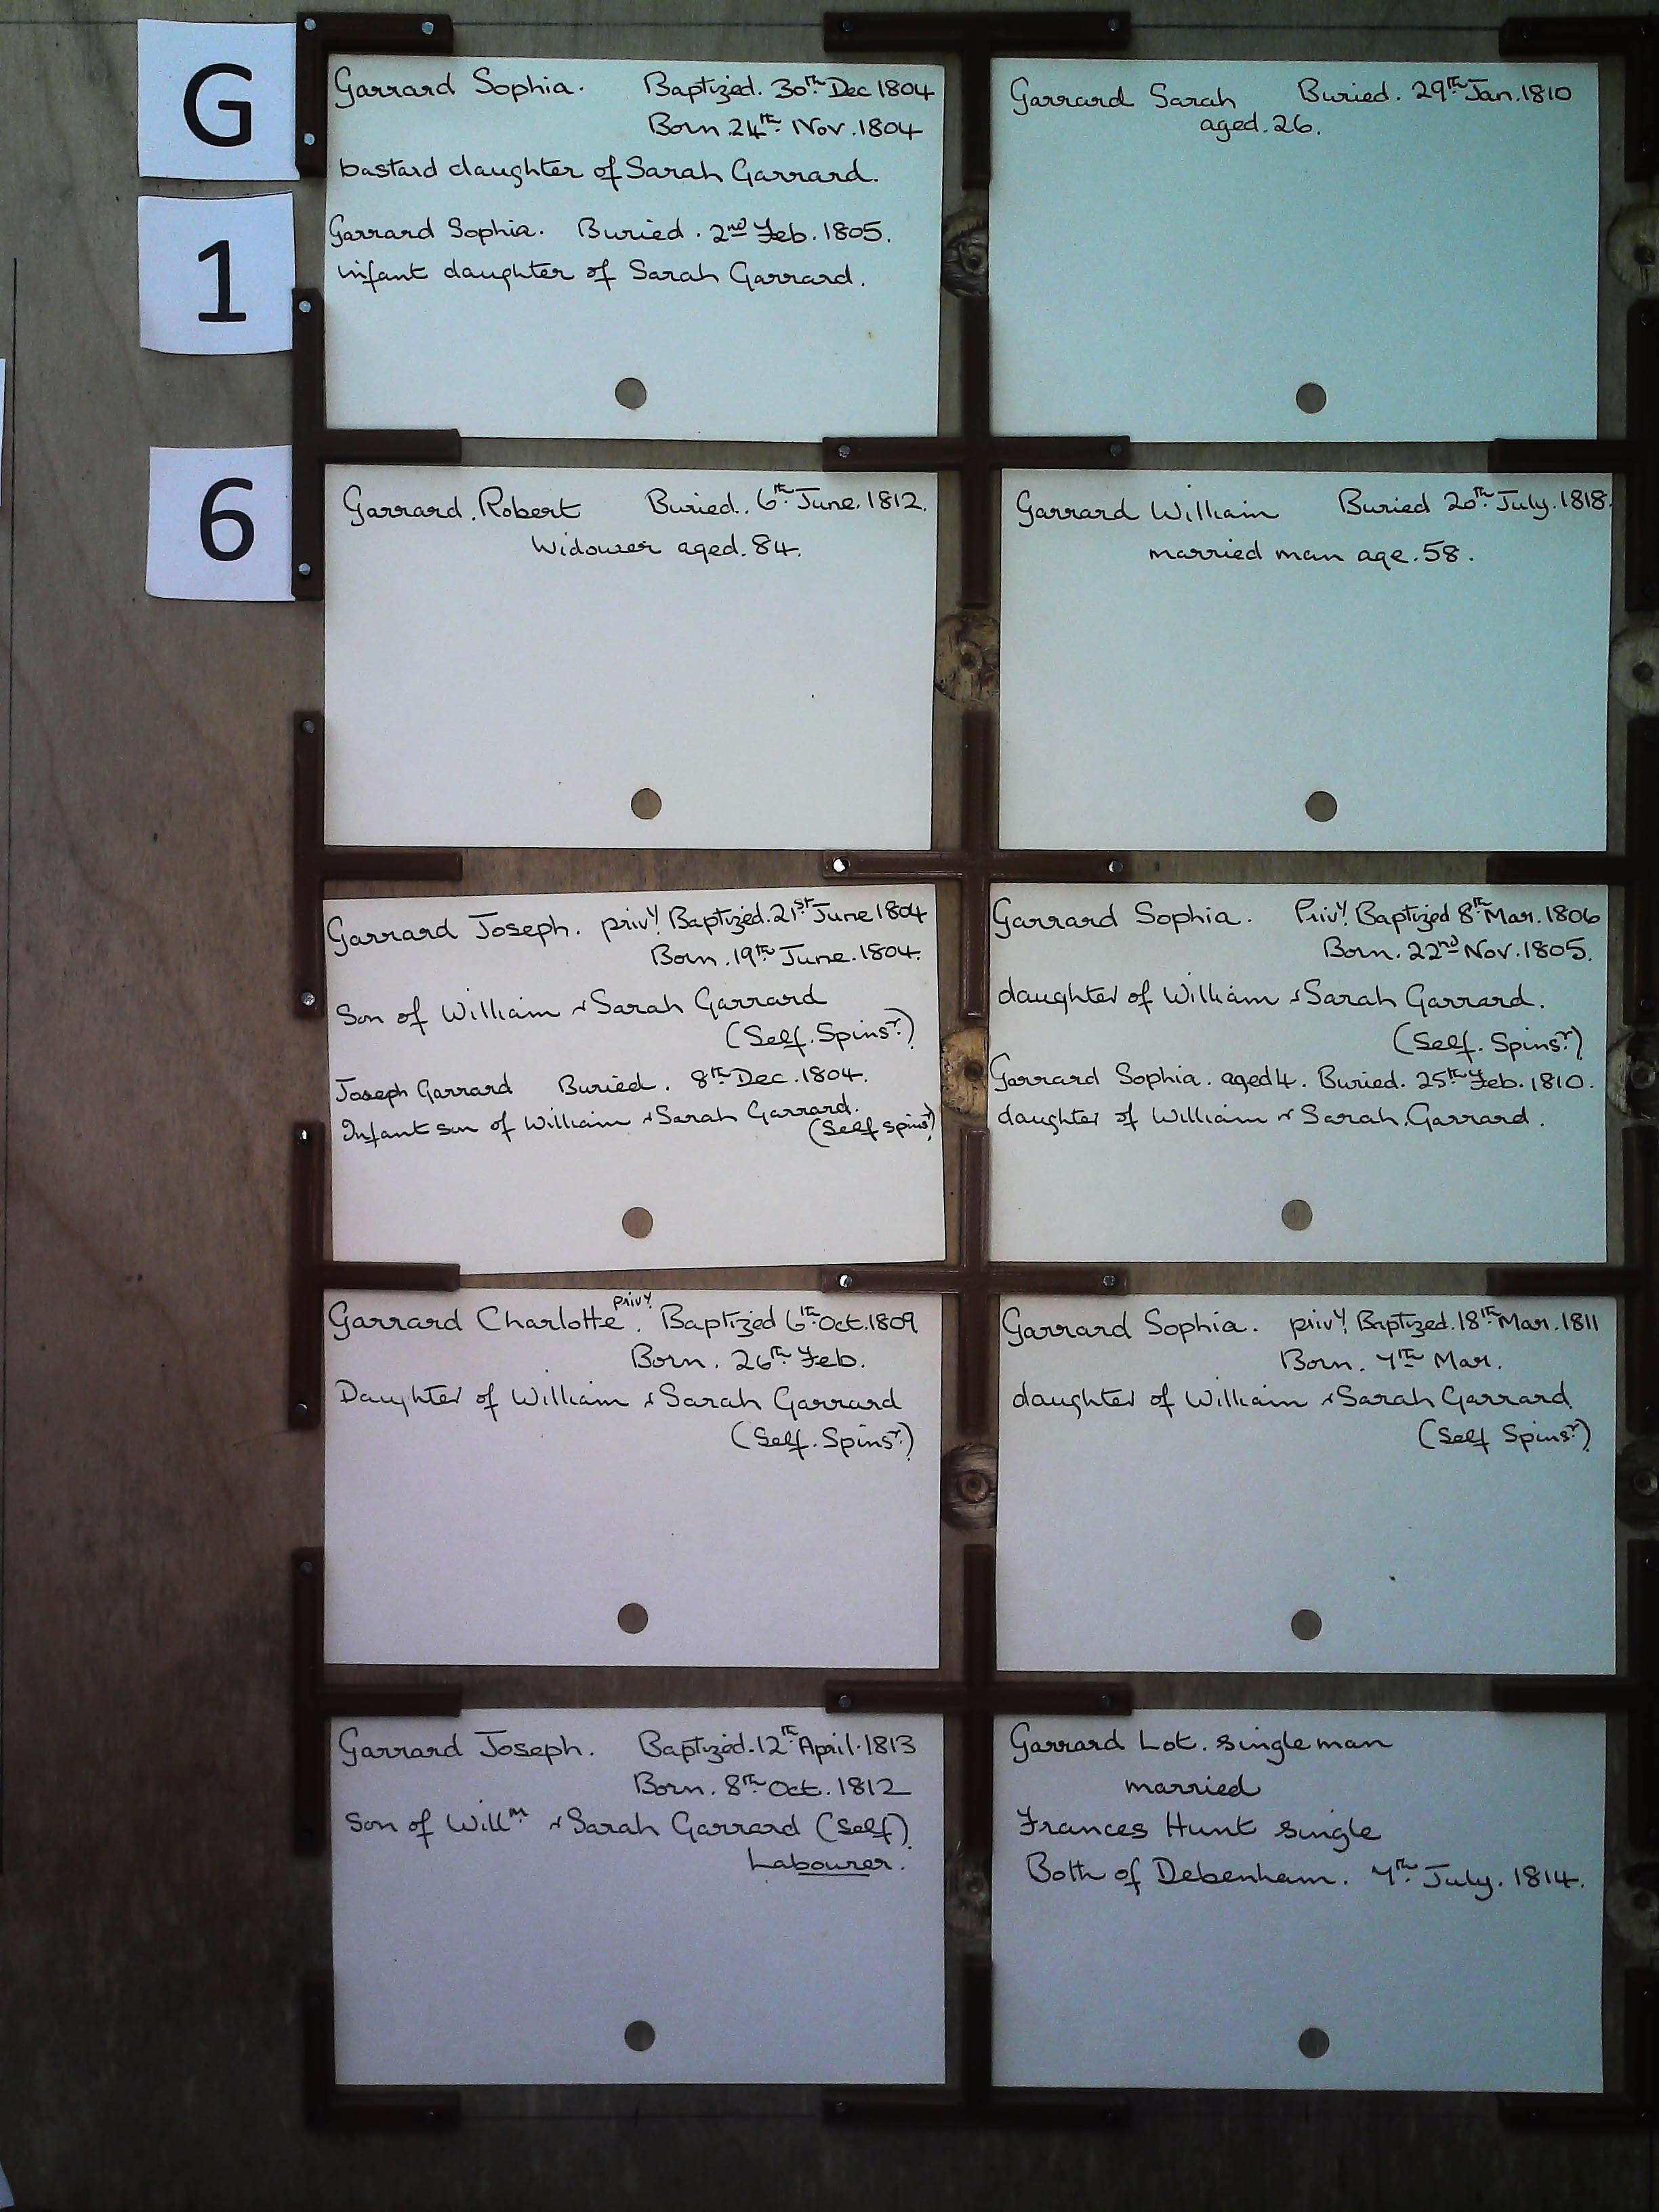 G
1
6
Garrard Sophia. Baptized. 30th Dec 1804
Born 24th Nov. 1804
bastard daughter of Sarah Garrard.
Garrard Sophia. Buried. 2nd Feb. 1805.
infant daughter of Sarah Garrard.
Garrard Sarah Buried. 29th Jan. 1810
aged. 26.
Garrard. Robert Buried. 6th June. 1812.
Widower aged. 84.
Garrard William Buried 20th July. 1818.
married man age. 58.
Garrard Joseph. privy. Baptized. 21st June 1804
Born. 19th June. 1804.
Son of William & Sarah Garrard
(Self. Spinsr.)
Joseph Garrard Buried. 8th Dec. 1804.
Infant son of William & Sarah Garrard.
(Self spinsr)
Garrard Sophia. Privy. Baptized 8th Mar. 1806
Born. 22nd Nov. 1805.
daughter of William & Sarah Garrard.
(Self. Spinsr.)
Garrard Sophia. aged 4. Buried. 25th Feb. 1810.
daughter of William & Sarah. Garrard.
Garrard Charlotte. privy. Baptized 6th Oct. 1809
Born. 26th Feb.
Daughter of William & Sarah Garrard
(Self. Spinsr.)
Garrard Sophia. privy. Baptized. 18th Mar. 1811
Born. 7th Mar.
daughter of William & Sarah Garrard
(Self Spinsr.)
Garrard Joseph. Baptized. 12th April. 1813
Born. 8th Oct. 1812
Son of Willm & Sarah Garrard (Self)
Labourer.
Garrard Lot. single man
married
Frances Hunt single
Both of Debenham. 7th July. 1814.